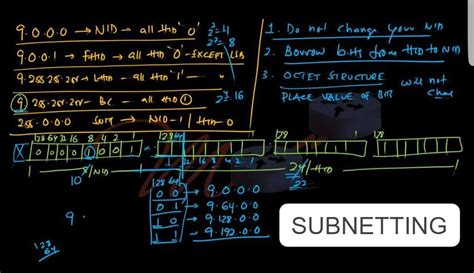 9.0.0.0 → NID - all HID '0'
2²=4
2³=8
9.0.0.1 → FHID - all HID '0' - EXCEPT LSB
9.255.255.254 - LHID - all HID '1' -
9.255.255.255 - BC - all HID 1
2⁴=16
255.0.0.0 SM → NID-1 / HID-0
1. Do not change your NID
2. Borrow bits from HID to NID
3. OCTET STRUCTURE
PLACE VALUE OF BITS
will not
128 64 32 16 8 4 2 1
128 64
128
128
X 0 0 0 0 1 0 0 1
32 16 8 4 2 1
8/NID
24/HID
22
10
128 64
0 0 → 9.0.0.0
0 1 → 9.64.0.0
1 0 → 9.128.0.0
1 1 → 9.192.0.0
9.
128
64
SUBNETTING